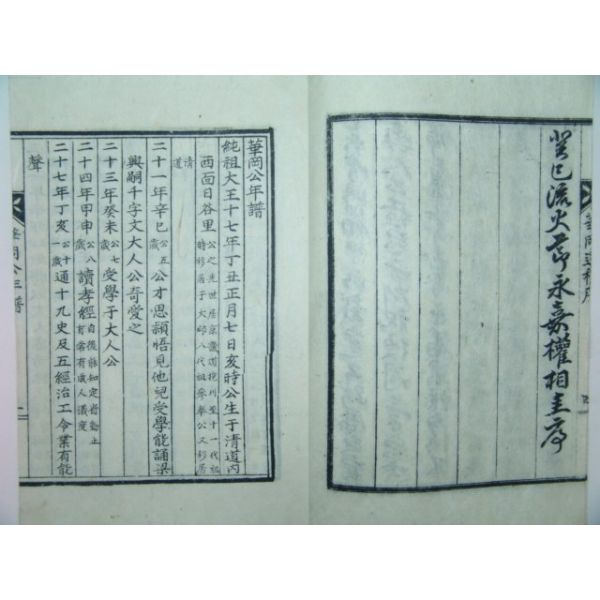 癸巳流火節永嘉權相圭序
華岡公年譜
純祖大王十七年丁丑正月七日亥時公生于清道內
西面日谷里
清道
二十一年辛巳公五歲公才思穎悟見他兒受學能誦梁
興嗣千字文大人公奇愛之
二十三年癸未公七歲受學于大人公
二十四年甲申公八歲讀孝經自後能知定省動止有常有成人儀度
二十七年丁亥公十一歲通十九史及五經治工令業有能
聲